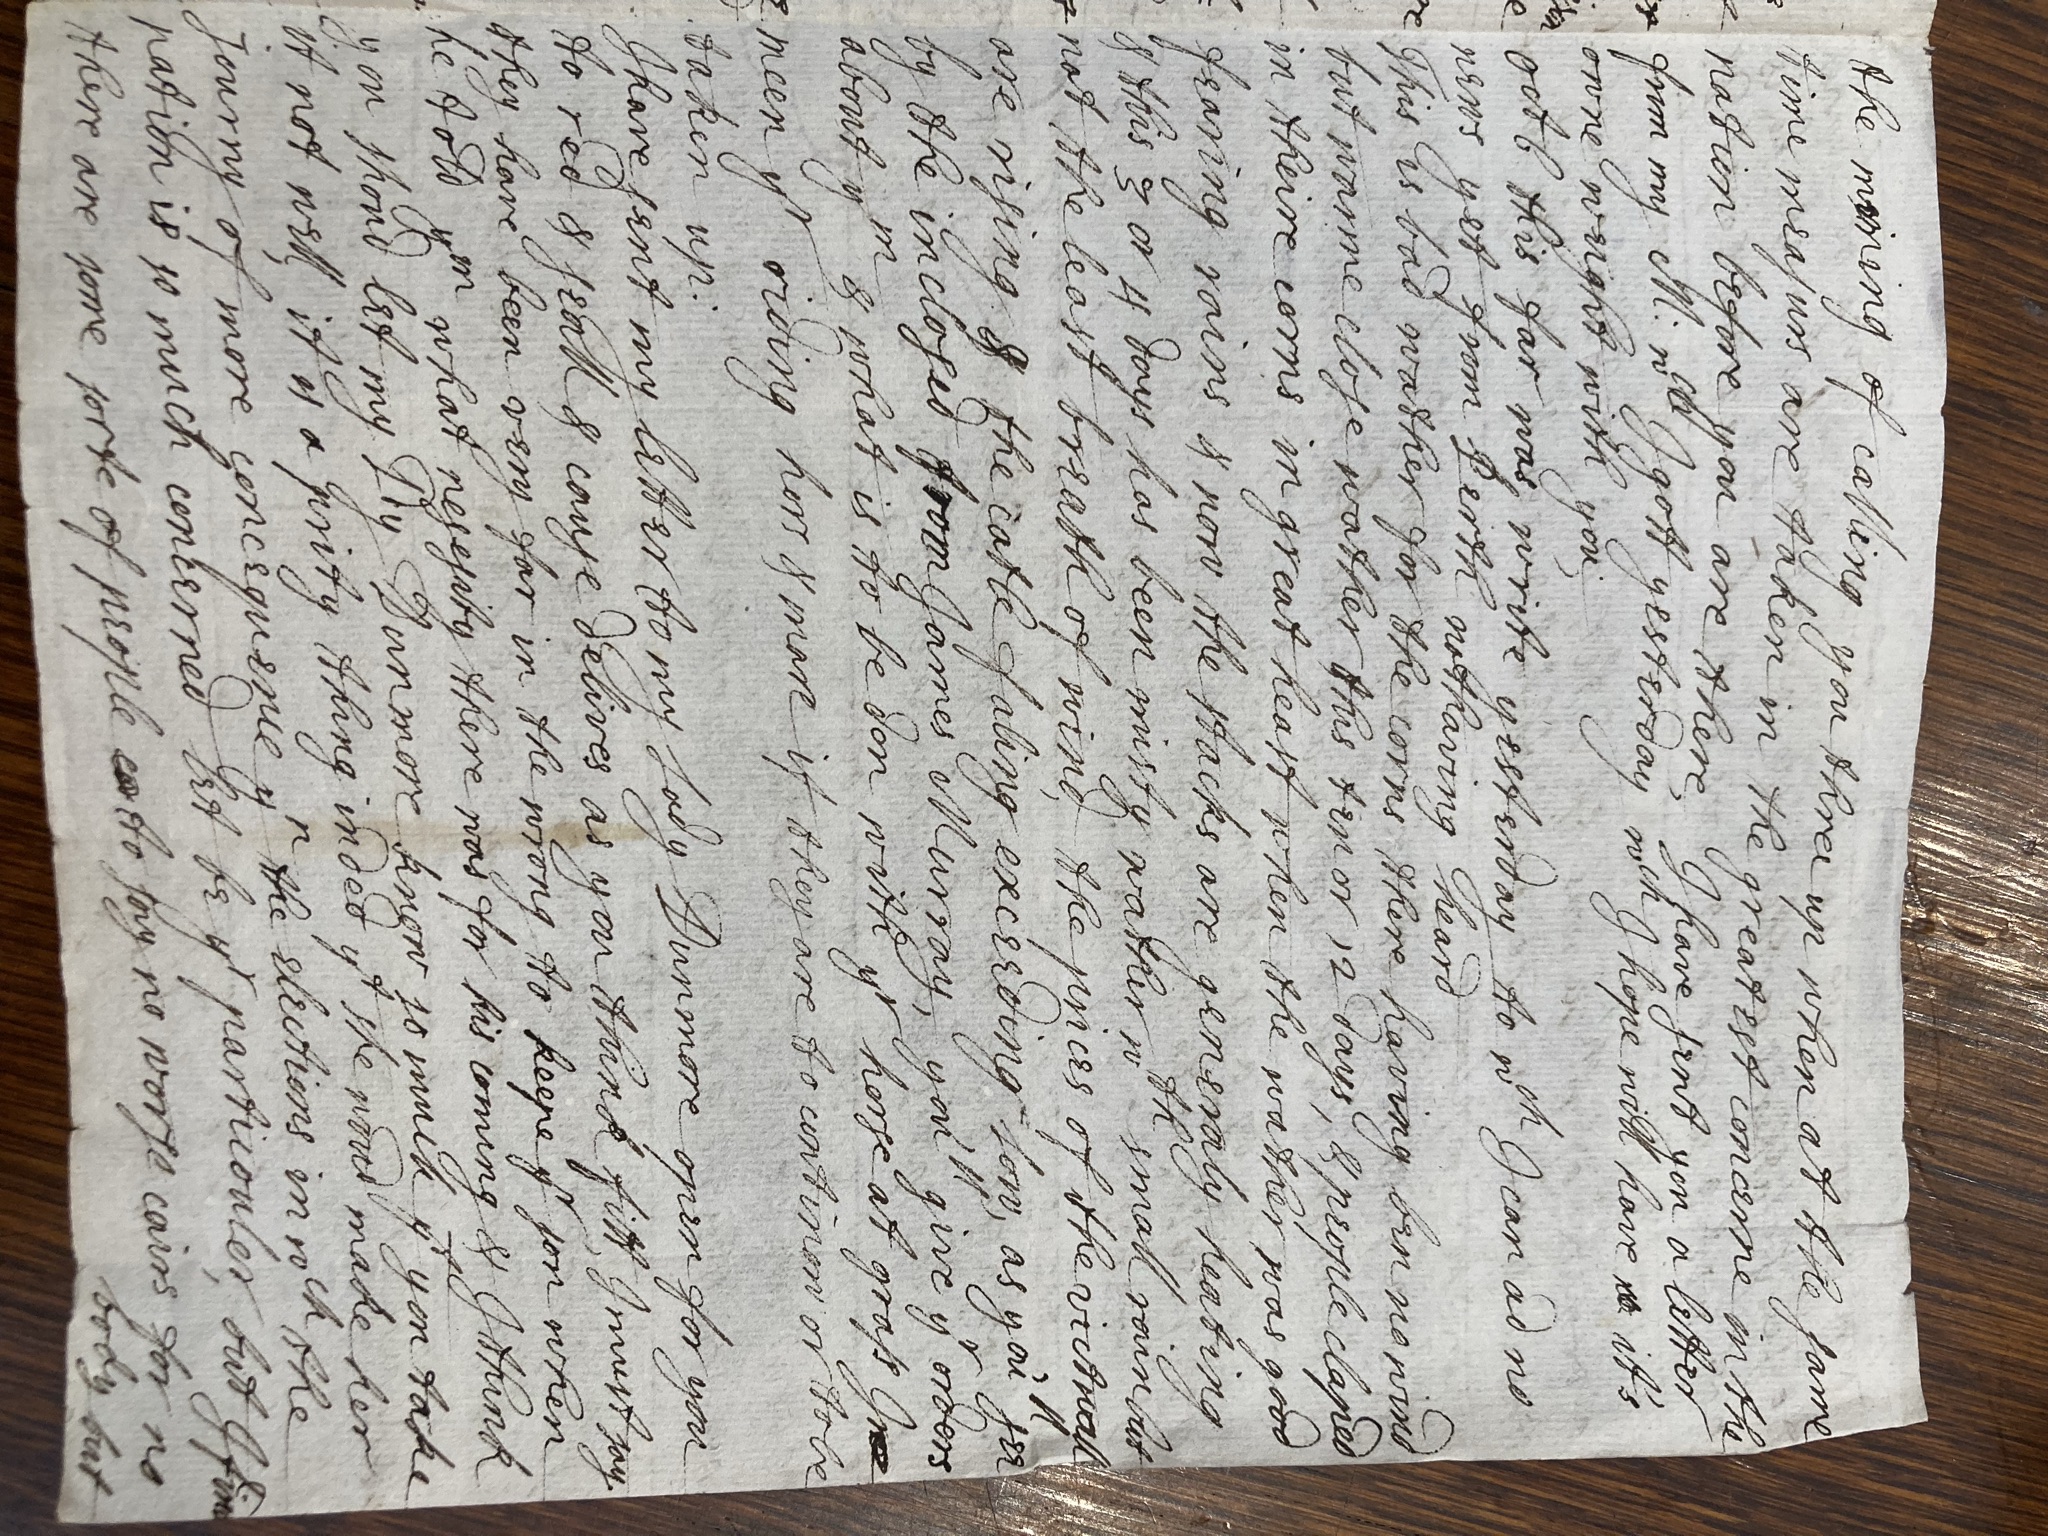 the mining of calling you three up when at the same
time measurs are taken in the greatest concerne in the
nation before you are there, I have sent you a letter
from my M: wch I gott yesterday wch I hope will have it's
owne weight with you;
oct 6 this far was write yesterday to wch I can ad no
news yet from Perth not having heard
This is bad wather for the corns there having ben no wind
but warme close wather this ten or 12 days, & people claped
in theire corns in great heast when the wather was good
fearing rains & now the stacks are generaly heating
& this 3 or 4 days has been misty wather wth small rain but
not the least breath of wind, the prices of the victuall
are rising & the catle faling exceeding low, as you'll see
by the inclosed from James Murray, you'll give yr orders
about ym & what is to be don with yr horse at grass I
meen yr riding hors & mare if they are to continow or to be
taken up:
I have sent my letter to my Lady Dunmore open for you
to red & seall & cause delives as you think fitt, I must say
they have been very far in the wrong to keepe yr son when
he told ym what nesesity there was for his coming & I think
you shoud let my Ldy Dunmore know so much yt you take
it not well, it is a prity thing inded yt she woud make her
journy of more concequence yn the elections in wch the
nation is so much concerned let be yr particouler, but I find
there are some sorte of people to say no worse cairs for no
body but